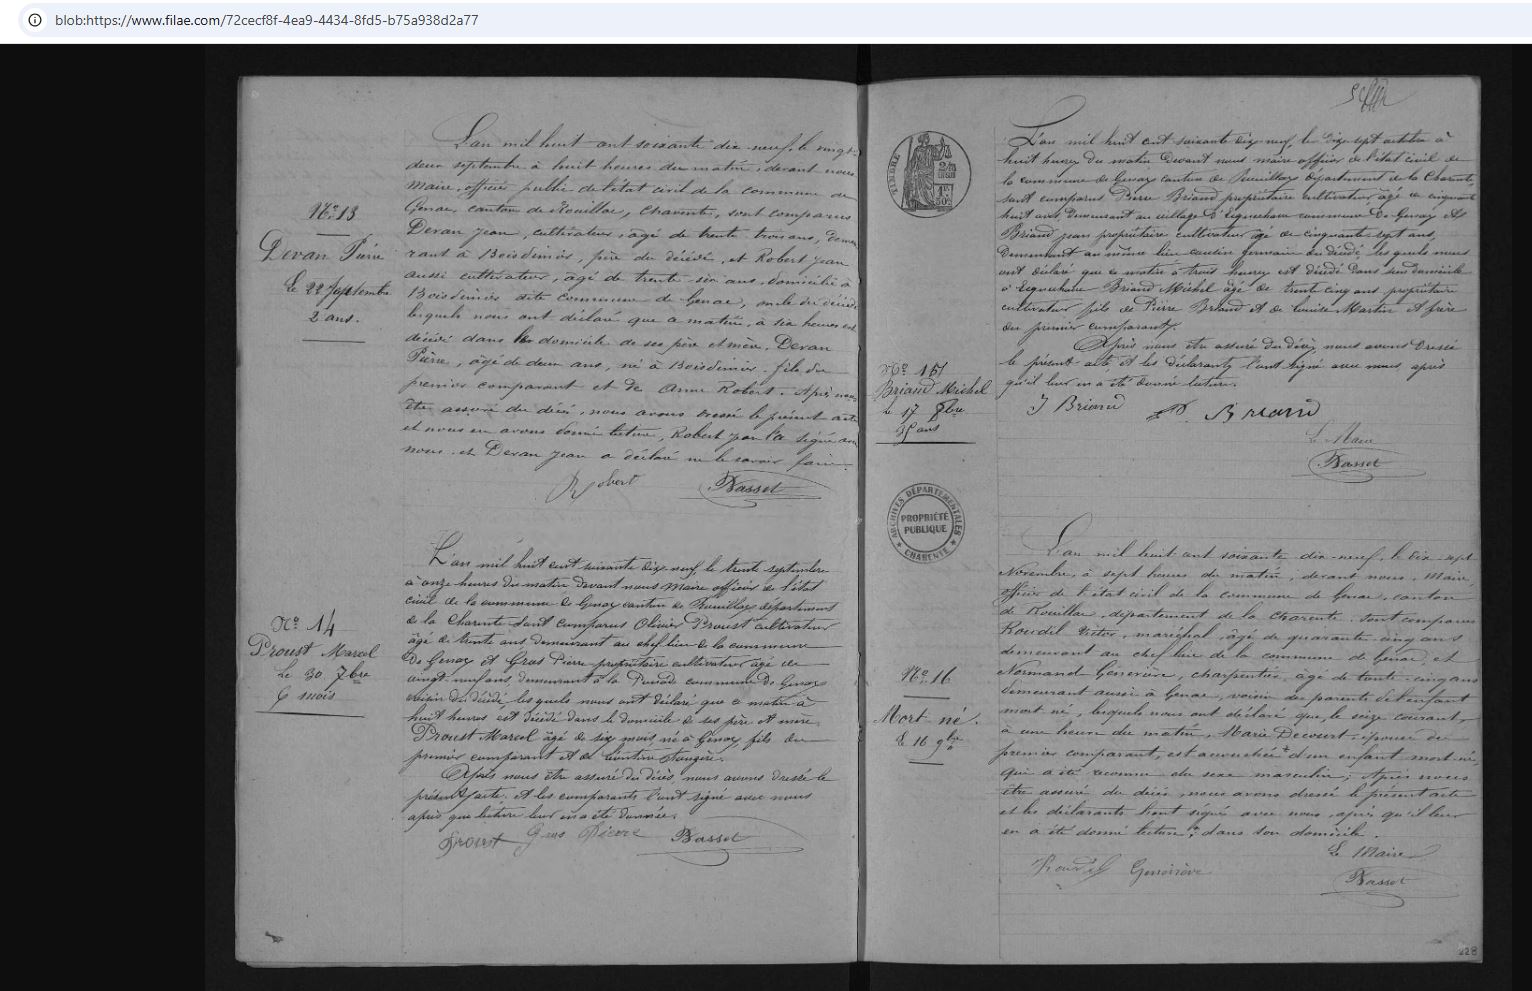 blob:https://www.filae.com/72cecf8f-4ea9-4434-8fd5-b75a938d2a77
L'an mil huit cent soixante dix-neuf, le vingt-
deux septembre à huit heures du matin, devant nous
maire, officier public de l'état civil de la commune de
Genac, canton de Rouillac, Charente, sont comparus
Devan Jean, cultivateur, âgé de trente trois ans, demeu
rant à Boisdinier, père du décédé, et Robert Jean
aussi cultivateur, âgé de trente six ans, domicilié à
Boisdinier dite commune de Genac, oncle du décédé
lesquels nous ont déclaré que ce matin, à six heures est
décédé dans le domicile de ses père et mère, Devan
Pierre, âgé de deux ans, né à Boisdinier, fils du
premier comparant et de Anne Robert. Après nous
être assuré du décès, nous avons dressé le présent acte
et nous en avons donné lecture, Robert Jean l'a signé avec
nous et Devan Jean a déclaré ne le savoir faire.
Robert Basset
No 13
Devan Pierre
Le 22 septembre
2 ans.
L'an mil huit cent soixante dix neuf, le trente septembre
à onze heures du matin devant nous Maire officier de l'état
civil de la commune de Genac canton de Rouillac département
de la Charente sont comparus Olivier Proust cultivateur
âgé de trente ans demeurant au chef lieu de la commune
de Genac et Gras Pierre propriétaire cultivateur âgé de
vingt-neuf ans demeurant à la commune de Genac
voisin du décédé, lesquels nous ont déclaré que ce matin à
huit heures est décédé dans le domicile de ses père et mère,
Proust Marcel âgé de six mois, né à Genac, fils du
premier comparant et de
Après nous être assuré du décès nous avons dressé le
présent acte et les comparants l'ont signé avec nous
après que lecture leur en a été donnée.
Proust Gras Pierre Basset
No 14
Proust Marcel
Le 30 7bre
6 mois
TIMBRE
L'an mil huit cent soixante dix neuf, le dix sept octobre à
huit heures du matin Devant nous maire officier de l'état civil de
la commune de Genac canton de Rouillac département de la Charente,
sont comparus Pierre Briand propriétaire cultivateur âgé de cinquante
huit ans, demeurant au village d' commune de Genac et
Briand Jean propriétaire cultivateur âgé de cinquante sept ans,
Demeurant au même lieu cousin germain du décédé lesquels nous
ont déclaré que ce matin à trois heures est décédé dans son domicile
à Briand Michel âgé de trente cinq ans, propriétaire
cultivateur fils de Pierre Briand et de Louise Martin et frère
du premier comparant.
Après nous être assuré du décès nous avons dressé
le présent acte et les déclarants l'ont signé avec nous après
qu'il leur en a été donné lecture.
J Briand P. Briand
Le Maire
Basset
No 15
Briand Michel
le 17 8bre
35 ans
ARCHIVES DÉPARTEMENTALES
PROPRIÉTÉ
PUBLIQUE
CHARENTE
L'an mil huit cent soixante dix-neuf, le dix-sept
Novembre, à sept heures du matin, devant nous, Maire,
officier de l'état civil de la commune de Genac, canton
de Rouillac, département de la Charente, sont comparus
Rondil Victor, maréchal, âgé de quarante cinq ans
demeurant au chef lieu de la commune de Genac, et
Normand Genevière, charpentier, âgé de trente-cinq ans
demeurant aussi à Genac, voisin des parents de l'enfant
mort-né, lesquels nous ont déclaré que, le seize courant,
à une heure du matin, Marie Decourt, épouse du
premier comparant, est accouchée d'un enfant mort-né,
qui a été reconnu du sexe masculin; Après nous
être assuré du décès, nous avons dressé le présent acte
et les déclarants l'ont signé avec nous, après qu'il leur
en a été donné lecture, dans son domicile.
Le Maire
Basset
No 16
Mort-né.
Le 16 9bre
228